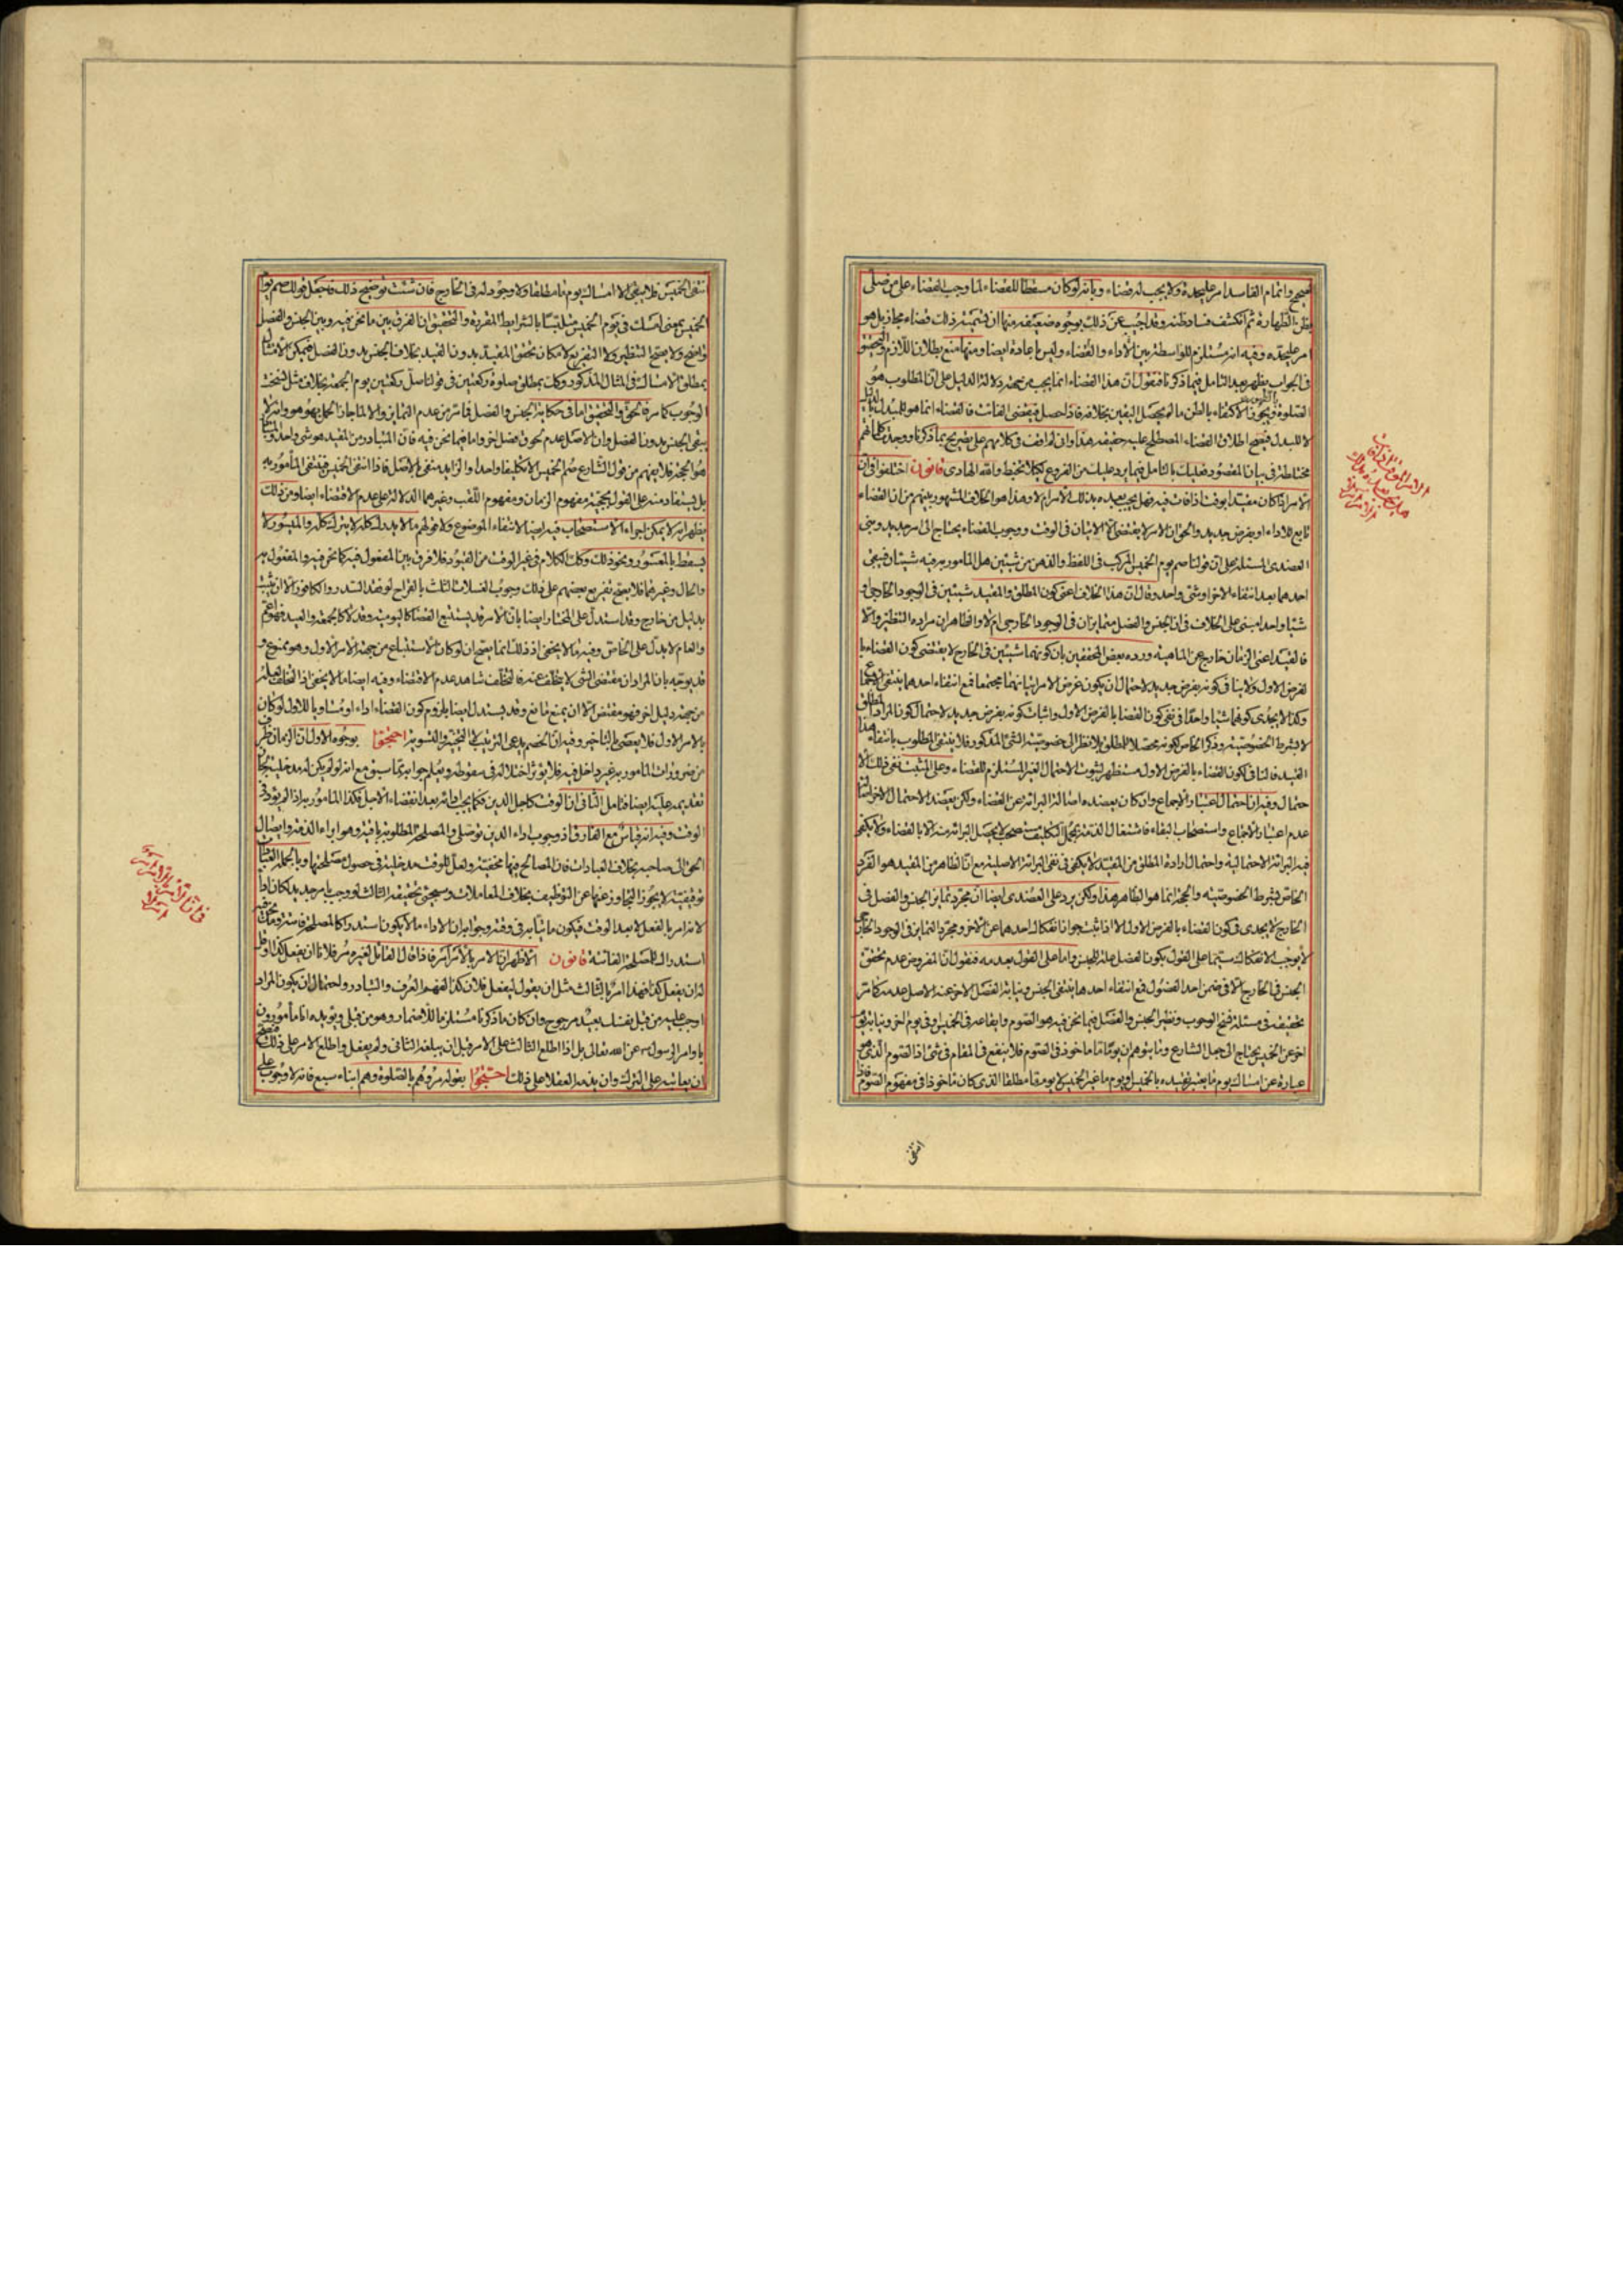 صحيح واتمام الفاسد امر عليحدة ولا يجب له قضاء وبانه لو كان مسقطا للقضاء لما وجب القضاء على من صلى
بظن الطهارة ثم انكشف فساد ظنه وقد اجيب عن ذلك بوجوه ضعيفة منها ان تسمية ذلك قضاء مجاز بل هو
امر عليحده وفيه انه مستلزم للواسطة بين الأداء والقضاء وليس باعادة ايضا ومنها منع بطلان اللازم والتحقيق
في الجواب يظهر بعد التامل فيما ذكرنا فنقول ان هذا القضاء انما يجب من جهة دلالة الدليل على ان المطلوب هو
الصلوة ويجوز الاكتفاء بالظن ما لم يحصل اليقين بخلافه فاذا حصل فيقضى الفائت فالقضاء انما هو للمبدل
لا للبدل فيصح اطلاق القضاء المصطلح عليه حقيقة هذا وانى لم اقف في كلامهم على تصريح بما ذكرنا ووجدت كلماتهم
مختلطة في بيان المقصود فعليك بالتامل فيما يرد عليك من الفروع لكيلا يختبط والله الهادى قانون اختلفوا في ان
الأمر اذا كان مقيدا بوقت اذا فات فيه فهل يجب بعده بذلك الأمر ام لا وهذا هو الخلاف المشهور بينهم من ان القضاء
تابع للاداء او بفرض جديد والحق ان الامر لا يقتضى الا الاتيان في الوقت ووجوب القضاء يحتاج الى امر جديد وبنى
العضدى المسئلة على ان قولنا صم يوم الخميس المركب في اللفظ والذهن من شيئين هل المأمور به فيه شيئان فيبقى
احدهما بعد انتفاء الاخر او شئ واحد وقال ان هذا الخلاف اعنى كون المطلق والمقيد شيئين في الوجود الخارجى او
شيئا واحدا مبنى على الخلاف في ان الجنس والفصل متمايزان في الوجود الخارجى ام لا والظاهر ان مراده التنظير والا
فالقيد اعنى الزمان خارج عن الماهية ورده بعض المحققين بان كونهما شيئين في الخارج لا يقتضى كون القضاء با
لفرض الاول ولا ينافى كونه بفرض جديد لاحتمال ان يكون غرض الآمر اتيانهما مجتمعا فمع انتفاء احدهما ينتفى
وكذا لا يجدى كونهما شيئا واحدا في نفى كون القضا بالفرض الاول واثبات كونه بفرض جديد لاحتمال كون المراد المطلق
لا بشرط الخصوصية وذكر الخاص لكونه محصلا للمطلق لا نظرا الى خصوصية الشئ المذكور فلا ينتفى المطلوب بانتفاء هذا
القيد فالنافى لكون القضاء بالفرض الاول مستظهر لثبوت الاحتمال الغير المستلزم للقضاء وعلى المثبت نفى ذلك الا
حتمال وفيه ان احتمال اعتبار الاجتماع وان كان يعضده اصالة البرائة عن القضاء ولكن يعضد الاحتمال الاخر ايضا
عدم اعتبار الاجتماع واستصحاب البقاء فاشتغال الذمة بمجمل التكليف مستصحب لا يحصل البرائة منه الا بالقضاء ولا يكفى
فيه البرائة الاحتمالية واحتمال ارادة المطلق من المقيد لا يكفى في نفى البرائة الاصلية مع ان الظاهر من المقيد هو الفرد
الخاص بشرط الخصوصية والحجة انما هو الظاهر هذا ولكن يرد على العضدى ايضا ان مجرد تمايز الجنس والفصل في
الخارج لا يجدى في كون القضاء بالفرض الاول الا اذا ثبت جواز انفكاك احدهما عن الاخر ومجرد التمايز في الوجود الخارجى
لا يوجب الانفكاك سيما على القول بكون الفصل علة للجنس واما على القول بعدمه فنقول ان المفروض عدم تحقق
الجنس في الخارج الا في ضمن احد الفصول فمع انتفاء احدها ينتفى الجنس ونيابة الفصل الاخر عنه الاصل عدمه كما مر
تحقيقه في مسئلة نسخ الوجوب ونظير الجنس والفصل فيما نحن فيه هو الصوم وايقاعه في الخميس او في يوم اخر ونيابة يوم
اخر عن الخميس يحتاج الى جعل الشارع وما يتوهم ان يوما ما ماخوذ في الصوم فلا ينفع في المقام في شئ اذ الصوم الذى هو
عبارة عن امساك يوم ما يعتبر تقييده بالخميس او يوم ما غير الخميس لا يوم ما مطلقا الذى كان ماخوذا في مفهوم الصوم فاذا
انتفى
الامر الموقت اذا فات
هل يجب بعده بذلك
الامر ام لا
انتفى الخميس فلا يبقى الا امساك يوم ما مطلقا ولا وجود له في الخارج فان شئت توضيح ذلك فاجعل قولك صم يوم
الخميس بمعنى امسك في يوم الخميس متلبسا بالشرايط المقررة والتحقيق ان الفرق بين ما نحن فيه وبين الجنس والفصل
واضح ولا يصح التنظير ولا التفريع لامكان تحقق المقيد بدون القيد بخلاف الجنس بدون الفصل فيمكن الامتثال
بمطلق الامساك في المثال المذكور وكك بمطلق صلوة ركعتين في قولنا صل ركعتين يوم الجمعة بخلاف مثل نسخت
الوجوب كما مر فالحق والتحقيق اما في حكاية الجنس والفصل فما مر من عدم التمايز والا لما جاز الحمل بهو هو وانه لا
يبقى الجنس بدون الفصل وان الاصل عدم لحوق فصل اخر واما فيما نحن فيه فان المتبادر من المقيد هو شئ واحد والمتبادر
هو الحجة فلا يفهم من قول الشارع صم الخميس الا تكليفا واحدا والزايد منفى بالاصل فاذا انتفى الخميس فينتفى المأمور به
بل يستفاد منه على القول بحجية مفهوم الزمان ومفهوم اللقب وغيرهما الدلالة على عدم الاقتضاء ايضا ومن ذلك
يظهر انه لا يمكن اجراء الاستصحاب فيه ايضا لانتفاء الموضوع ولا قولهم ما لا يدرك كله لا يترك كله والميسور لا
يسقط بالمعسور ونحو ذلك وكك الكلام في غير الوقت من القيود فلا فرق بين المفعول فيه كما نحن فيه والمفعول به
والحال وغيرهما فلا يصح تفريع بعضهم على ذلك وجوب الغسلات الثلث بالقراح لو فقد السدر والكافور الا ان يثبت
بدليل من خارج وقد استدل على المختار ايضا بان الامر قد يستتبع القضا كاليومية وقد لا كالجمعة والعيد فهو اعم
والعام لا يدل على الخاص وفيه ما لا يخفى اذ ذلك انما يصح ان لو كان الاستتباع من جهة الامر الاول وهو ممنوع و
قد يوجه بان المراد ان مقتضى الشئ لا يتخلف عنه فالتخلف شاهد عدم الاقتضاء وفيه ايضا ما لا يخفى اذ التخلف لعله
من جهة دليل اخر فهو مقتض الا ان يمنع مانع وقد يستدل ايضا بلزوم كون القضاء اداء او مساويا للاول لو كان
بالامر الاول فلا يعصى بالتاخير وفيه ان الخصم يدعى الترتيب لا التخيير والتسوية احتجوا بوجوه الاول ان الزمان ظرف
من ضرورات المأمور به غير داخل فيه فلا يؤثر اختلاله في سقوطه ويعلم جوابه مما سبق مع انه لو لم يكن له مدخلية لجاز
تقديمه عليه ايضا فتامل الثانى ان الوقت كاجل الدين فكما يجب ادائه بعد انقضاء الاجل فكذا المأمور به اذا لم يؤد في
الوقت وفيه انه قياس مع الفارق اذ وجوب اداء الدين توصلى والمصلحة المطلوبة باقية وهو ابراء الذمة وايصال
الحق الى صاحبه بخلاف العبادات فان المصالح فيها مخفية ولعل للوقت مدخلية في حصول مصلحتها وبالجملة العبادات
توقيفية لا يجوز التجاوز فيها عن التوظيف بخلاف المعاملات وسيجئ تحقيقه الثالث لو وجب بامر جديد لكان اداء
لانه امر بالفعل لا بعد الوقت فيكون ماتيا به في وقته وجوابه ان الاداء ما لا يكون استدراكا لمصلحة فائتة وهذا
استدراك للمصلحة الفائتة قانون الاظهر ان الامر بالأمر أمر فاذا قال القائل لغيره مر فلانا ان يفعل كذا او قل
له ان يفعل كذا فهذا امر بالثالث مثل ان يقول ليفعل فلان كذا لفهم العرف والتبادر واحتمال ان يكون المراد
اوجب عليه من قبل نفسك بعيد مرجوح وان كان ما ذكرنا مستلزما للاضمار وهو من قبلى ويؤيده انا مأمورون
باوامر الرسول عن الله تعالى بل اذا اطلع الثالث على الامر قبل ان يبلغه الثانى ولم يفعل واطلع الامر على ذلك فيصح
ان يعاتبه على الترك وان يذمه العقلا على ذلك احتجوا بقوله مروهم بالصلوة وهم ابناء سبع فانه لا وجوب على
في ان الامر بالامر